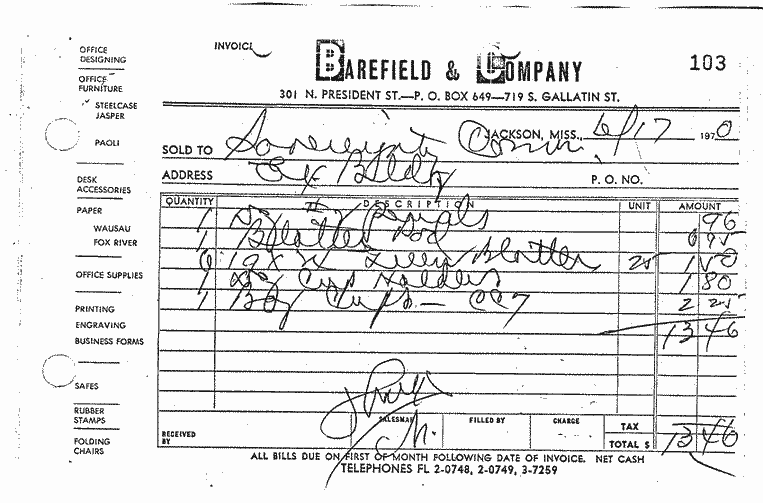 INVOICE
BAREFIELD & COMPANY
103
301 N. PRESIDENT ST.—P. O. BOX 649—719 S. GALLATIN ST.
JACKSON, MISS., 6/17 1970
SOLD TO Sovereignty Comm
ADDRESS Bldg P. O. NO.
QUANTITY DESCRIPTION UNIT AMOUNT
1 96
1 Blotter Pad 6 95
6 19 x 24 Green Blotter 25 1 50
1 Cup Holders 1 80
1 Box Cups — 2 25
13 46
RECEIVED BY SALESMAN FILLED BY CHARGE TAX
TOTAL $ 13 46
ALL BILLS DUE ON FIRST OF MONTH FOLLOWING DATE OF INVOICE. NET CASH
TELEPHONES FL 2-0748, 2-0749, 3-7259
OFFICE DESIGNING
OFFICE FURNITURE
STEELCASE
JASPER
PAOLI
DESK ACCESSORIES
PAPER
WAUSAU
FOX RIVER
OFFICE SUPPLIES
PRINTING
ENGRAVING
BUSINESS FORMS
SAFES
RUBBER STAMPS
FOLDING CHAIRS